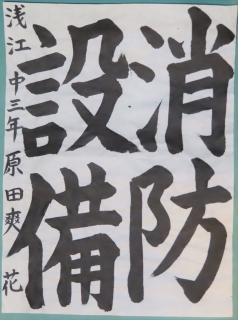 消防
設備
浅江中三年原田爽花